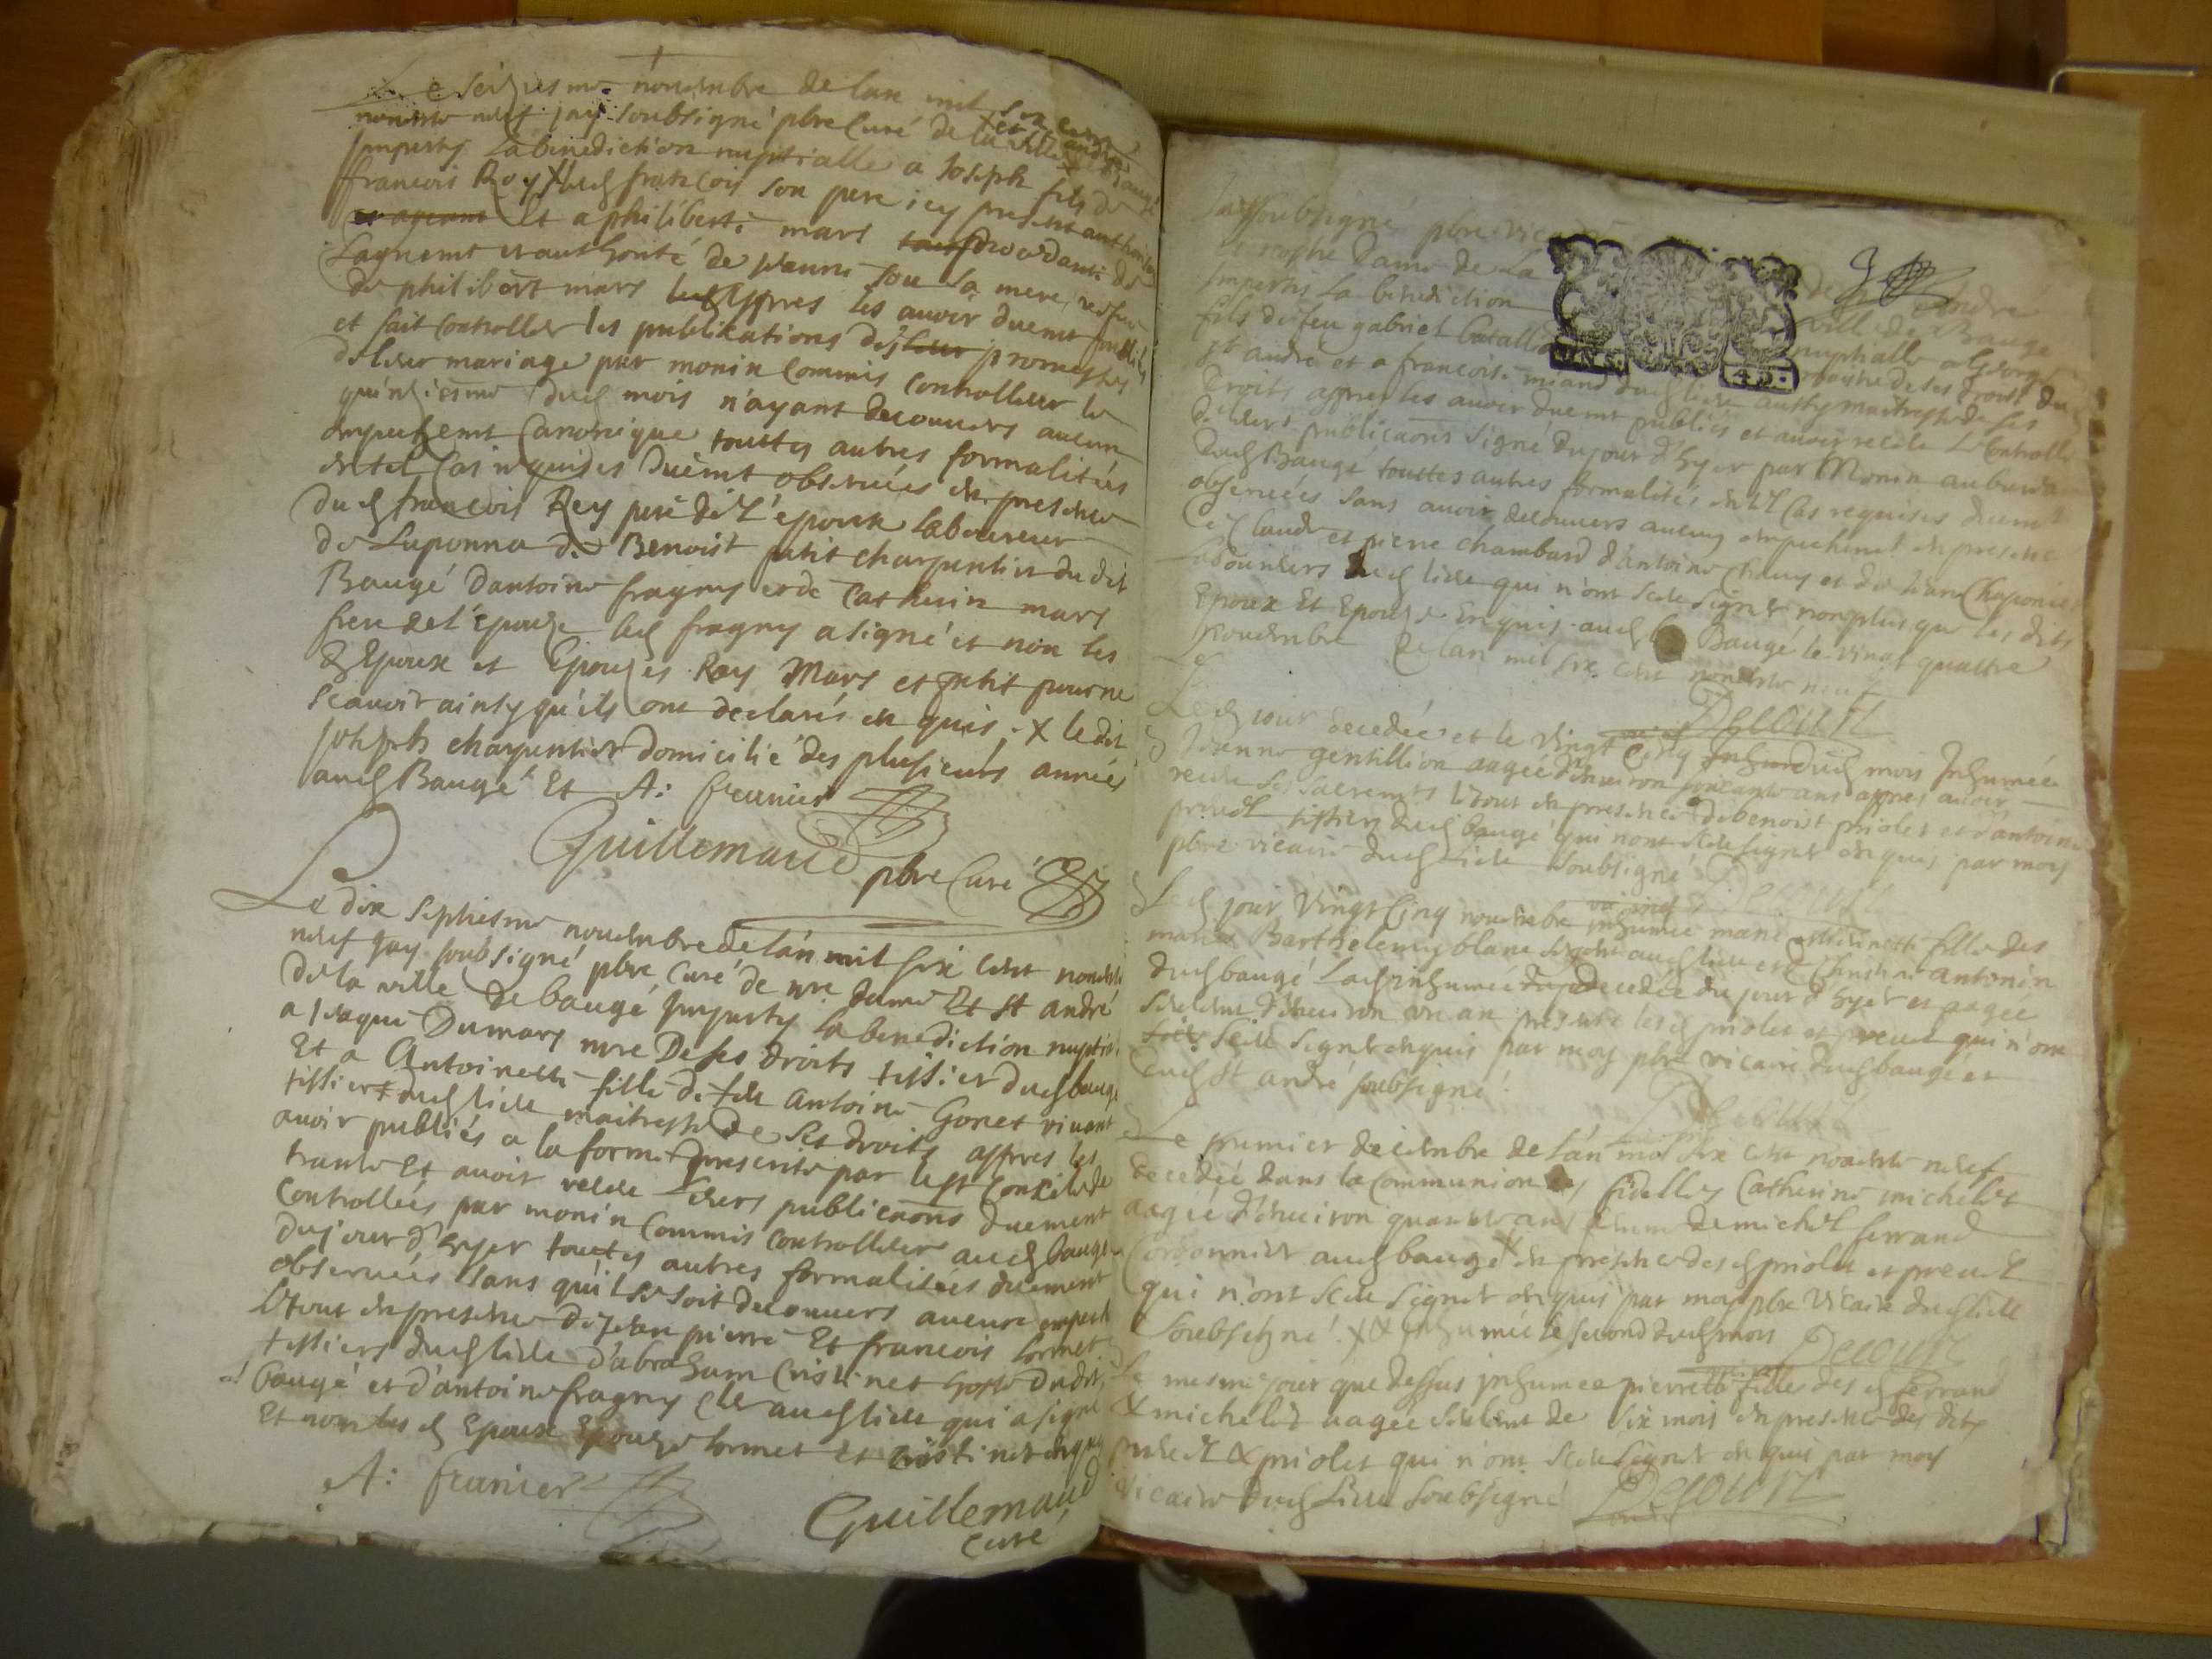 Le seiziesme nouembre de lan mil six cent
nonante neuf jay soubsigné pbre Curé de la ville
Impesty La benediction nuptialle a Joseph fils de
francois Rey X dud françois son pere icy present
et ayant Et a philiberte mars procedante de
Lagremt et authorité de sa mere
de philibert mars appres les auoir duemt publiés
et fait Controller les publications des promesses
de leur mariage par monin Commis Controlleur le
quinziesme dud mois n'ayant decouuers aucun
empechemt Canonique touttes autres formalités
en tel Cas requises duëmt obseruées en presence
dud françois Rey peré de l'epoux laboureur
de Luponna de Benoist petit charpentier du dit
Baugé d'antoine fragny et de Catherin mars
frere de l'epouze led fragny a signé et non les
d Epoux et Epouzes Rey Mars et petit pour ne
scauoir ainsy qu'ils ont declarés en quis . X le dit
joseph charpentier domicilié des plusieurs années
aud Baugé Et A: frenier
Guillemaud pbre Curé
Le dix septiesme nouembre de lan mil six cent nonante
neuf jay soubsigné pbre Curé de nre dame Et St andré
de la ville de baugé Impesty la benediction nuptia
a Jaque Dumars mre De ses droits tissier dud bauge
Et a Antoinette fille de feu Antoine Gonet viuant
tissier dud lieu maitresse de ses droits appres les
auoir publiés a la forme prescrite par le st Concile de
trante Et auoir veüe leurs publicaons duement
Controllées par monin Commis Controlleur aud bauge
du jour d'hyer touttes autres formalitées duement
obseruées sans qu'il se soit decouuers aucune empech
Le tout en presence de Jean pierre Et francois Cornet
tissiers dud lieu d'abraham Cristinet hoste dudit
baugé et d'antoine fragny Clc aud lieu qui a signé
Et non les d Epoux Epouze Cornet et Cristinet enquis
A: frenier
Guillemaud
Curé
Jay soubsigné pbre vicaire de St Andre
et nostre Dame de La ville de Bauge
Impertis La benediction nuptialle a George
fils de feu gabriel Catalla maistre de ses droits du
St andré et a francoise miand dud lieu aussy maitresse de ses
droits appres les auoir duemt publiés et auoir receüe Le Controlle
de leurs publicaons signé du jour d'hyer par Monin au bureau
dud Baugé touttes autres formalités en tel Cas requises duemt
obseruées sans auoir decouuers aucung empechemt en presence
de Claude et pierre chambard d'antoine Chany et de Jean Chaponier
Laboureurs dud lieu qui n'ont sceu signer non plus que les dits
Epoux Et Epouze Enquis aud Baugé le vingt quattre
Nouembre de lan mil six cent nonante neuf
Decourt
Led jour decedée et le vingt Cinq dud mois Inhumée
Jeanne gentillion aagée d'enuiron soixante ans appres auoir
receu ses sacremts le tout en presence de benoist priolet et d'antoine
preuet tissiers dud baugé qui nont sceu signer en quis par moy
pbre vicaire dud Lieu soubsigné Decourt
Led jour Vingt Cinq nouembre inhumée marie fille des
mariés Barthelemy blanc aud lieu et d Antonin
dud baugé Lad inhumée decedée du jour d'hyer et aagée
seulemt d'enuiron un an presents lesd priolet et preuet qui n'ont
sceu signer enquis par moy pbre vicaire dud baugé et
dud St andré soubsigné
Decourt
Le premier decembre de l'an mil six cent nonante neuf
decedée dans la Communion des fidelles Catherine michelet
aagée d'enuiron quarante ans femme de michel ferrand
Cordonnier aud baugé X en presence des d priolet et preuet
qui n'ont sceu signer enquis par moy pbre Vicaire dud lieu
Soubsigné . X & inhumée le second dud mois Decourt
Le mesme jour que dessus inhumée pierrette fille des d ferrand
& michelet aagée seulemt de six mois en presence des dits
preuet & priolet qui n'ont sceu signer en quis par moy
Vicaire dud Lieu Soubsigné Decourt